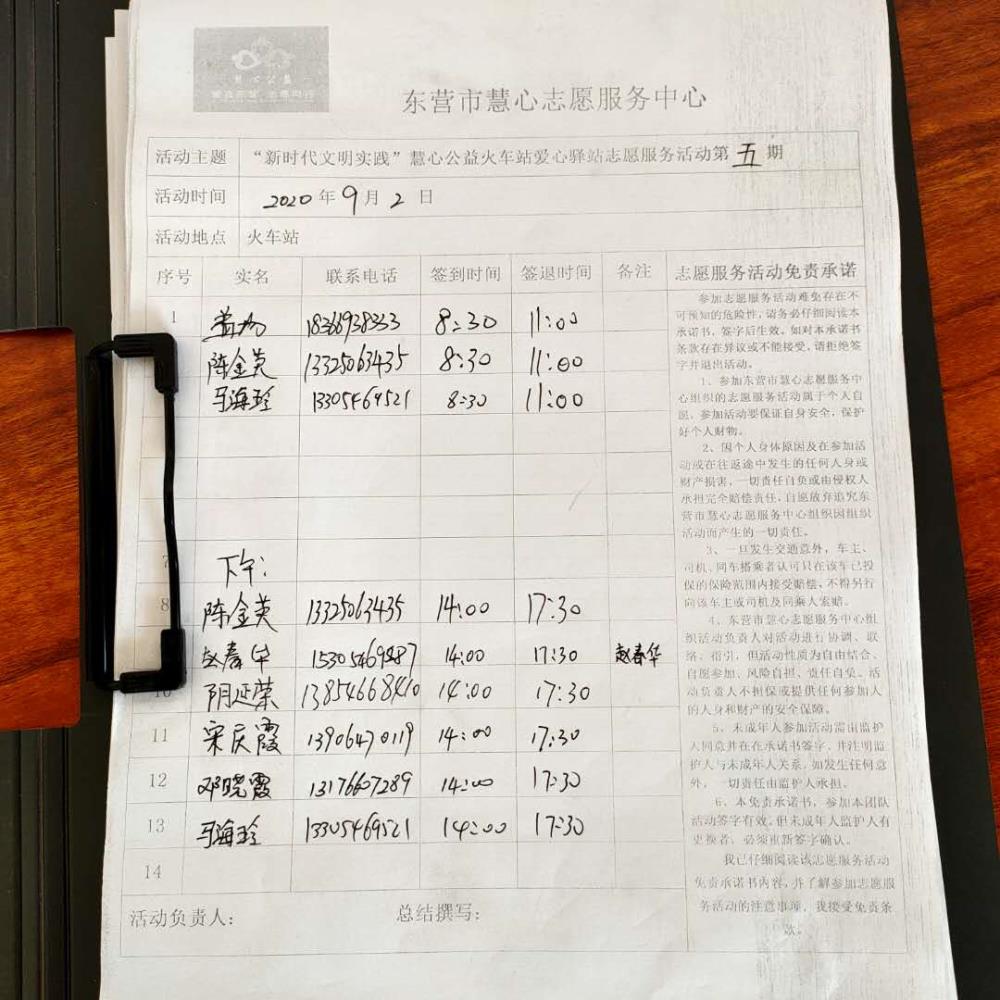 东营市慧心志愿服务中心
活动主题 “新时代文明实践”慧心公益火车站爱心驿站志愿服务活动第五期
活动时间 2020年9月2日
活动地点 火车站
序号 实名 联系电话 签到时间 签退时间 备注 志愿服务活动免责承诺
1 18366938333 8:30 11:00
陈金英 13325063435 8:30 11:00
马海珍 13305469521 8:30 11:00
7 下午:
8 陈金英 13325063435 14:00 17:30
赵春华 15305469887 14:00 17:30 赵春华
10 阴延荣 13854668410 14:00 17:30
11 宋庆霞 13906470119 14:00 17:30
12 邓晓霞 13176607289 14:00 17:30
13 马海珍 13305469521 14:00 17:30
14
活动负责人: 总结撰写:
参加志愿服务活动难免存在不
可预知的危险性,请务必仔细阅读本
承诺书,签字后生效。如对本承诺书
条款存在异议或不能接受,请拒绝签
字并退出活动。
1、参加东营市慧心志愿服务中
心组织的志愿服务活动属于个人自
愿,参加活动要保证自身安全,保护
好个人财物。
2、因个人身体原因及在参加活
动或在往返途中发生的任何人身或
财产损害,一切责任自负或由侵权人
承担完全赔偿责任,自愿放弃追究东
营市慧心志愿服务中心组织因组织
活动而产生的一切责任。
3、一旦发生交通意外,车主、
司机、同车搭乘者认可只在该车已投
保的保险范围内接受赔偿,不得另行
向该车主或司机及同乘人索赔。
4、东营市慧心志愿服务中心组
织活动负责人对活动进行协调、联
络、指引,但活动性质为自由结合、
自愿参加、风险自担、责任自负。活
动负责人不担保或提供任何参加人
的人身和财产的安全保障。
5、未成年人参加活动需由监护
人同意并在在承诺书签字,并注明监
护人与未成年人关系,如发生任何意
外,一切责任由监护人承担。
6、本免责承诺书,参加本团队
活动签字有效,但未成年人监护人有
更换者,必须重新签字确认。
我已仔细阅读该志愿服务活动
免责承诺书内容,并了解参加志愿服
务活动的注意事项,我接受免责条
款。